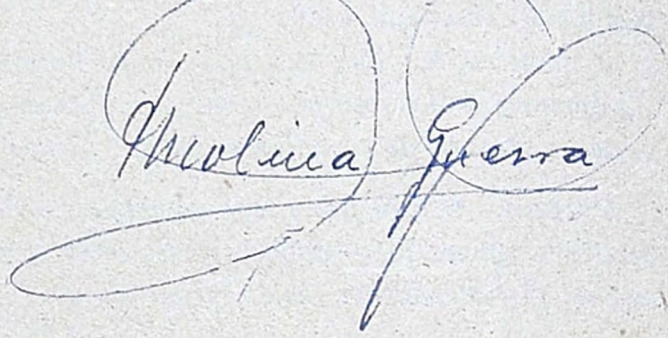 Molina Guerra